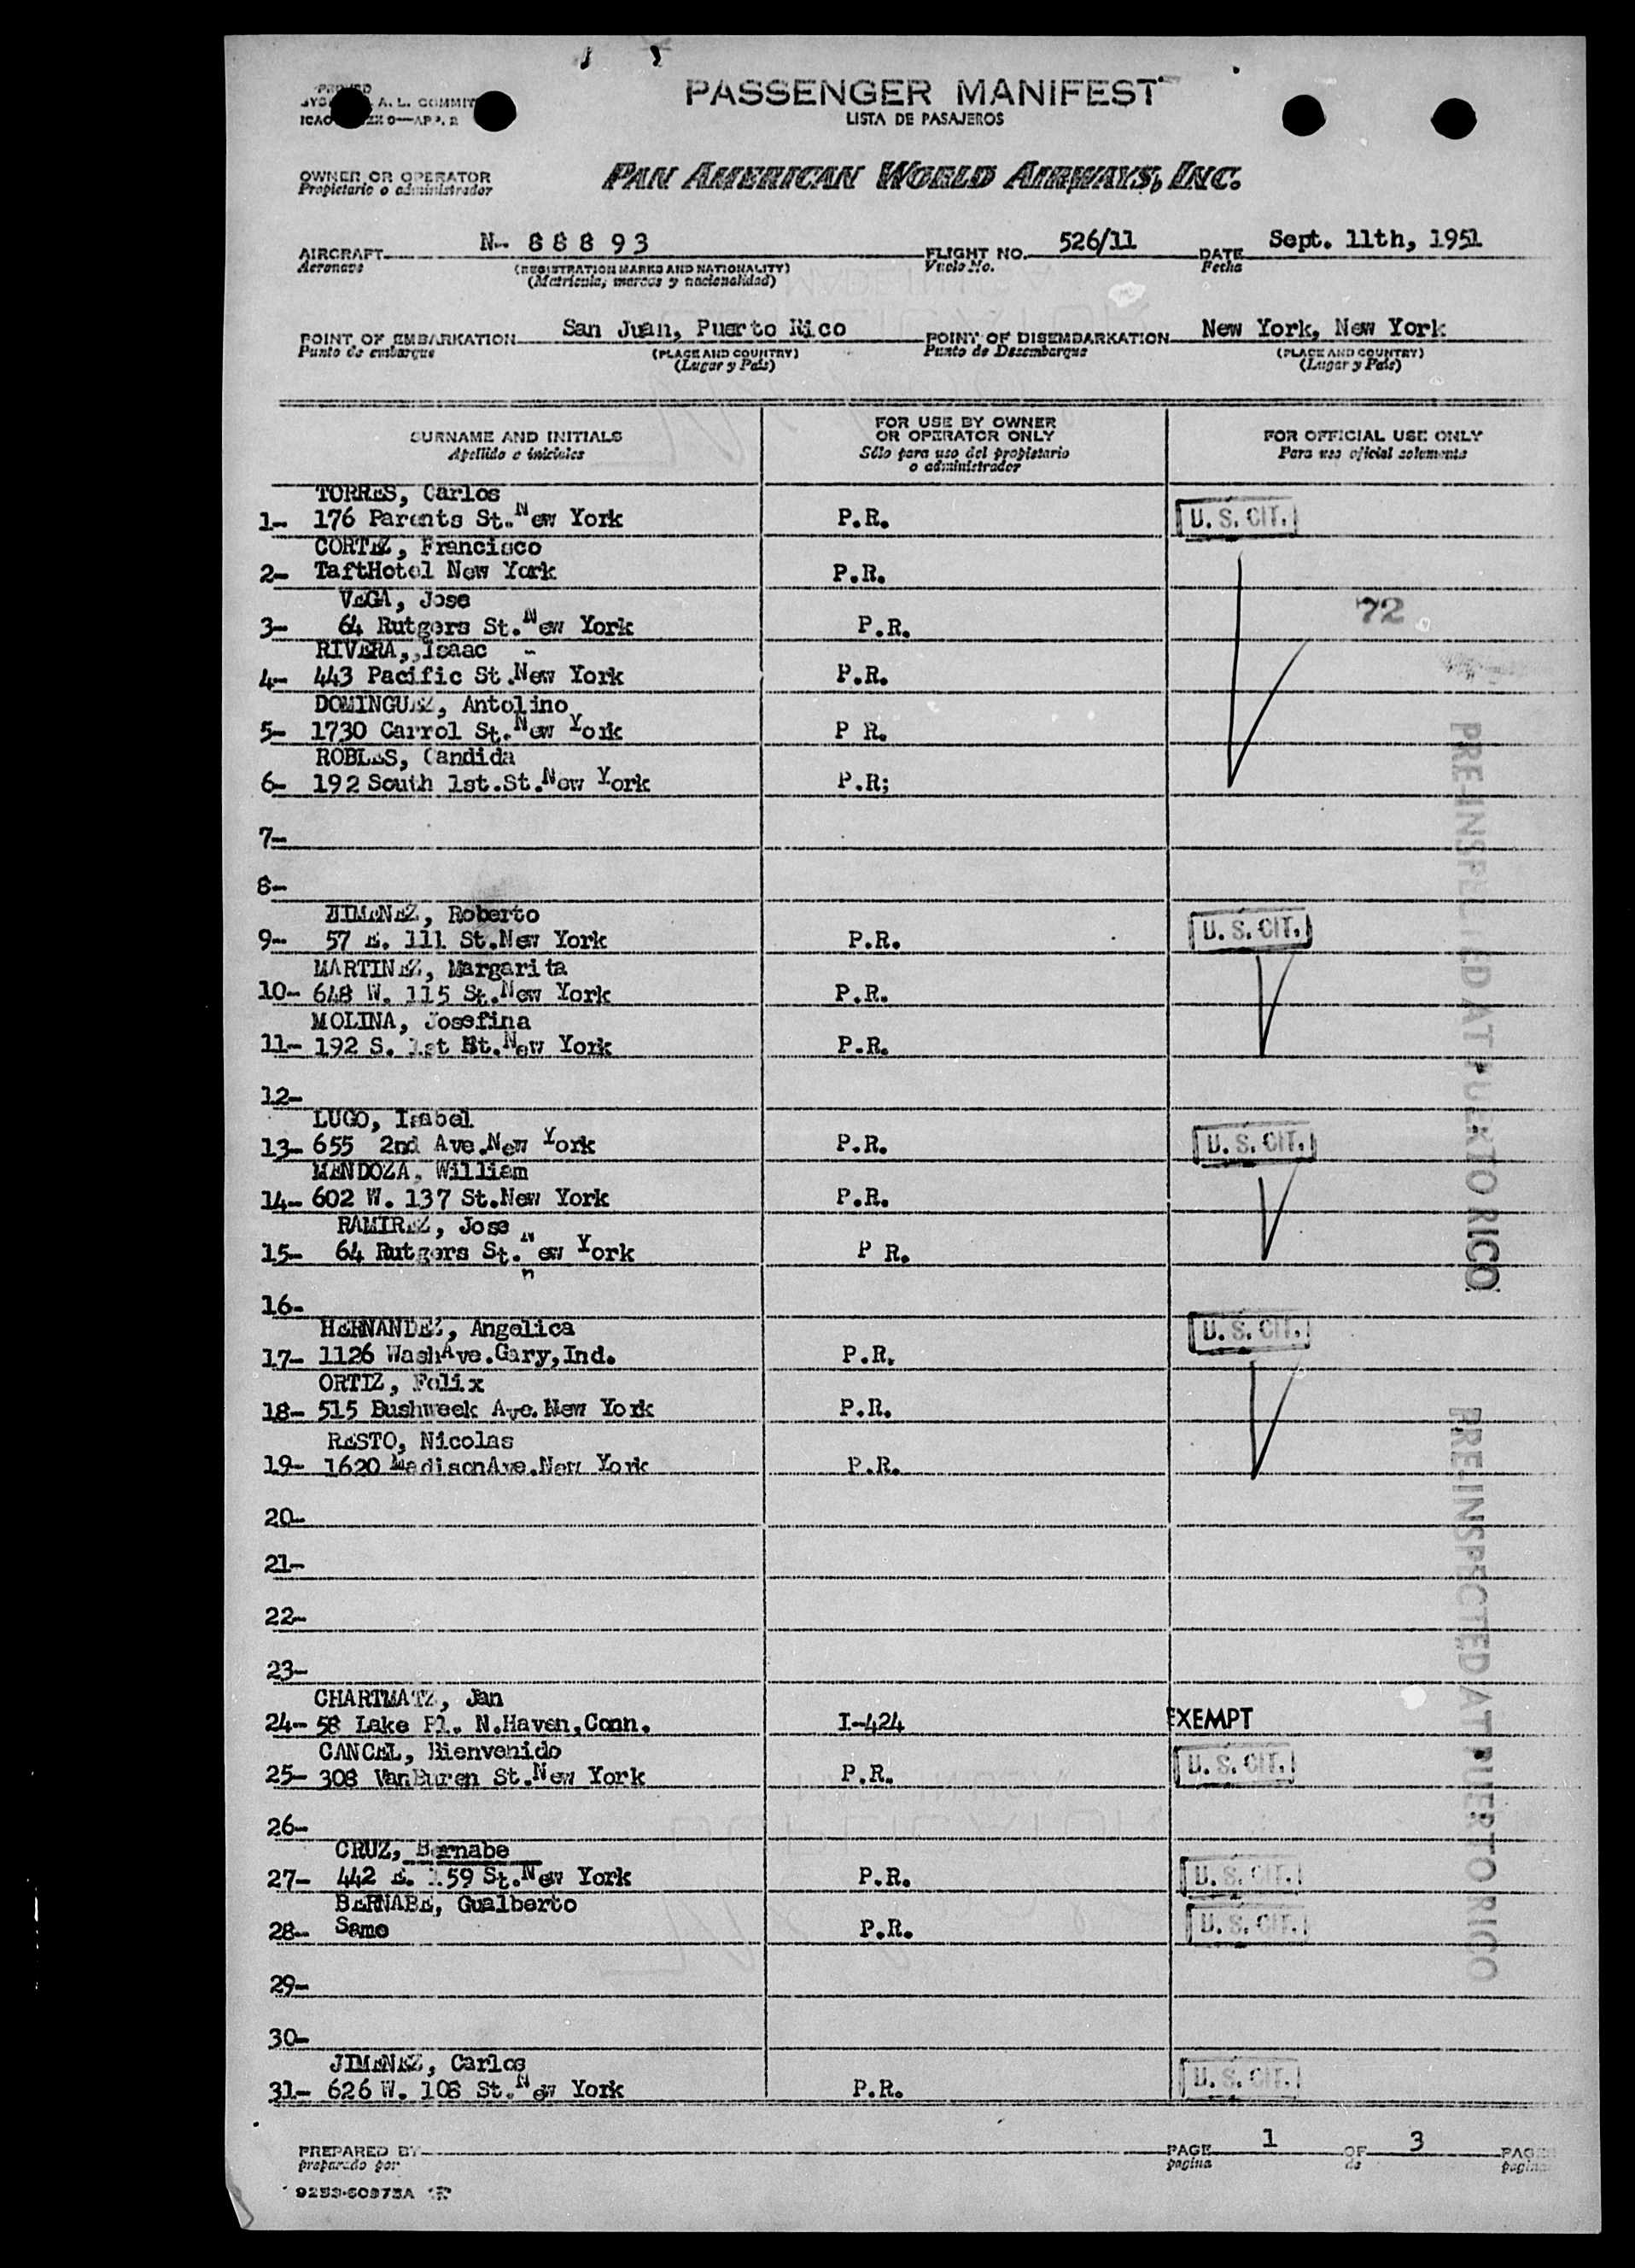 A. L. COMMIT
PASSENGER MANIFEST
LISTA DE PASAJEROS
OWNER OR OPERATOR
Propietario o administrador
PAN AMERICAN WORLD AIRWAYS, INC.
AIRCRAFT N- 88893 FLIGHT NO. 526/11 DATE Sept. 11th, 1951
Aeronave (REGISTRATION MARKS AND NATIONALITY) Vuelo No. Fecha
(Matricula, marcas y nacionalidad)
POINT OF EMBARKATION San Juan, Puerto Rico POINT OF DISEMBARKATION New York, New York
Punto de embarque (PLACE AND COUNTRY) Punto de Desembarque (PLACE AND COUNTRY)
(Lugar y Pais) (Lugar y Pais)
SURNAME AND INITIALS FOR USE BY OWNER OR OPERATOR ONLY FOR OFFICIAL USE ONLY
Apellido e iniciales Sólo para uso del propietario o administrador Para uso oficial solamente
TORRES, Carlos
1- 176 Parents St.New York P.R. U. S. CIT.
CORTEZ, Francisco
2- TaftHotel New York P.R.
VEGA, Jose
3- 64 Rutgers St.New York P.R. 72
RIVERA,,Isaac -
4- 443 Pacific St.New York P.R.
DOMINGUEZ, Antolino
5- 1730 Carrol St.New York P R.
ROBLES, Candida
6- 192 South 1st.St.New York P.R;
7-
8-
JIMENEZ, Roberto
9- 57 E. 111 St.New York P.R. U. S. CIT.
MARTINEZ, Margarita
10- 648 W. 115 St.New York P.R.
MOLINA, Josefina
11- 192 S. 1st St.New York P.R.
12-
LUGO, Isabel
13- 655 2nd Ave.New York P.R. U. S. CIT.
MENDOZA, William
14- 602 W. 137 St.New York P.R.
RAMIREZ, Jose
15- 64 Rutgers St.New York P R.
16-
HERNANDEZ, Angelica
17- 1126 WashAve.Gary,Ind. P.R. U. S. CIT.
ORTIZ, Felix
18- 515 Bushweek Ave.New York P.R.
RESTO, Nicolas
19- 1620 MadisonAve.New York P.R.
20-
21-
22-
23-
CHARTMATZ, Jan
24- 58 Lake Pl. N.Haven,Conn. I-424 EXEMPT
CANCEL, Bienvenido
25- 308 VanBuren St.New York P.R. U. S. CIT.
26-
CRUZ, Bernabe
27- 442 E. 159 St.New York P.R. U. S. CIT.
BERNABE, Gualberto
28- Same P.R. U. S. CIT.
29-
30-
JIMENEZ, Carlos
31- 626 W. 108 St.New York P.R. U. S. CIT.
PRE-INSPECTED AT PUERTO RICO
PRE-INSPECTED AT PUERTO RICO
PREPARED BY PAGE 1 OF 3 PAGES
preparado por pagina de pagina
9253-60373A